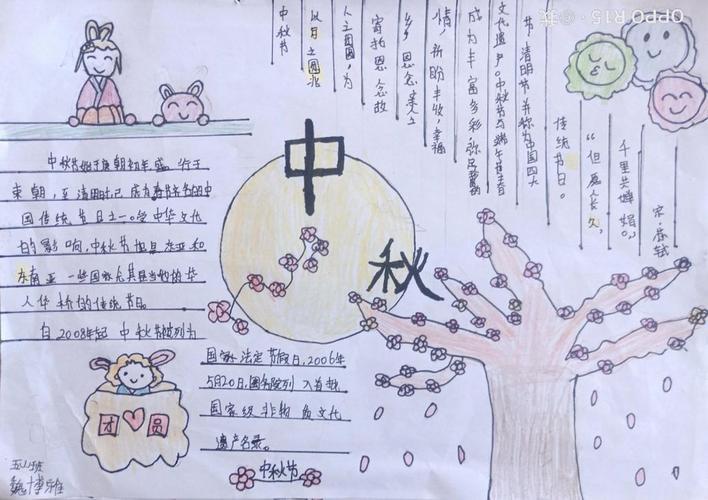 中秋节
以月之圆兆
人之团圆,为
寄托思念故
乡,思念亲人之
情,祈盼丰收、幸福
成为丰富多彩、弥足珍贵的
文化遗产。中秋节与端午节、春
节、清明节并称为中国四大
传统节日。
“但愿人长久,
千里共婵娟。”
宋·苏轼
中秋
中秋节始于唐朝初年,盛行于
宋朝,至明清时,已成为春节齐名的中
国传统节日之一。受中华文化
的影响,中秋节也是东亚和
东南亚一些国家尤其是当地的华
人华侨的传统节日。
自2008年起中秋节被列为
国家法定节假日,2006年
5月20日,国务院列入首批
国家级非物质文化
遗产名录。
团圆
中秋节
魏博雅
OPPO R15